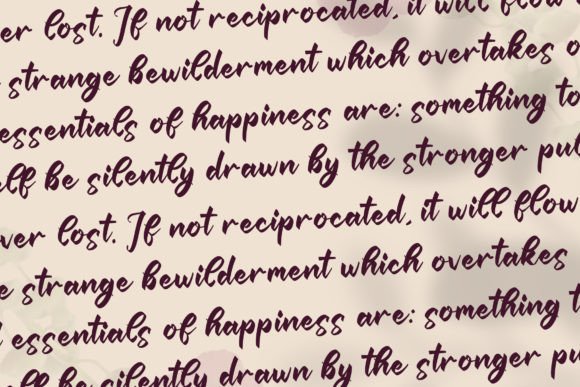 ver lost. If not reciprocated, it will flow
strange bewilderment which overtakes
essentials of happiness are: something to
elf be silently drawn by the stronger pul
ver lost. If not reciprocated, it will flow
e strange bewilderment which overtakes
essentials of happiness are: something t
elf be silently drawn by the stronger pu